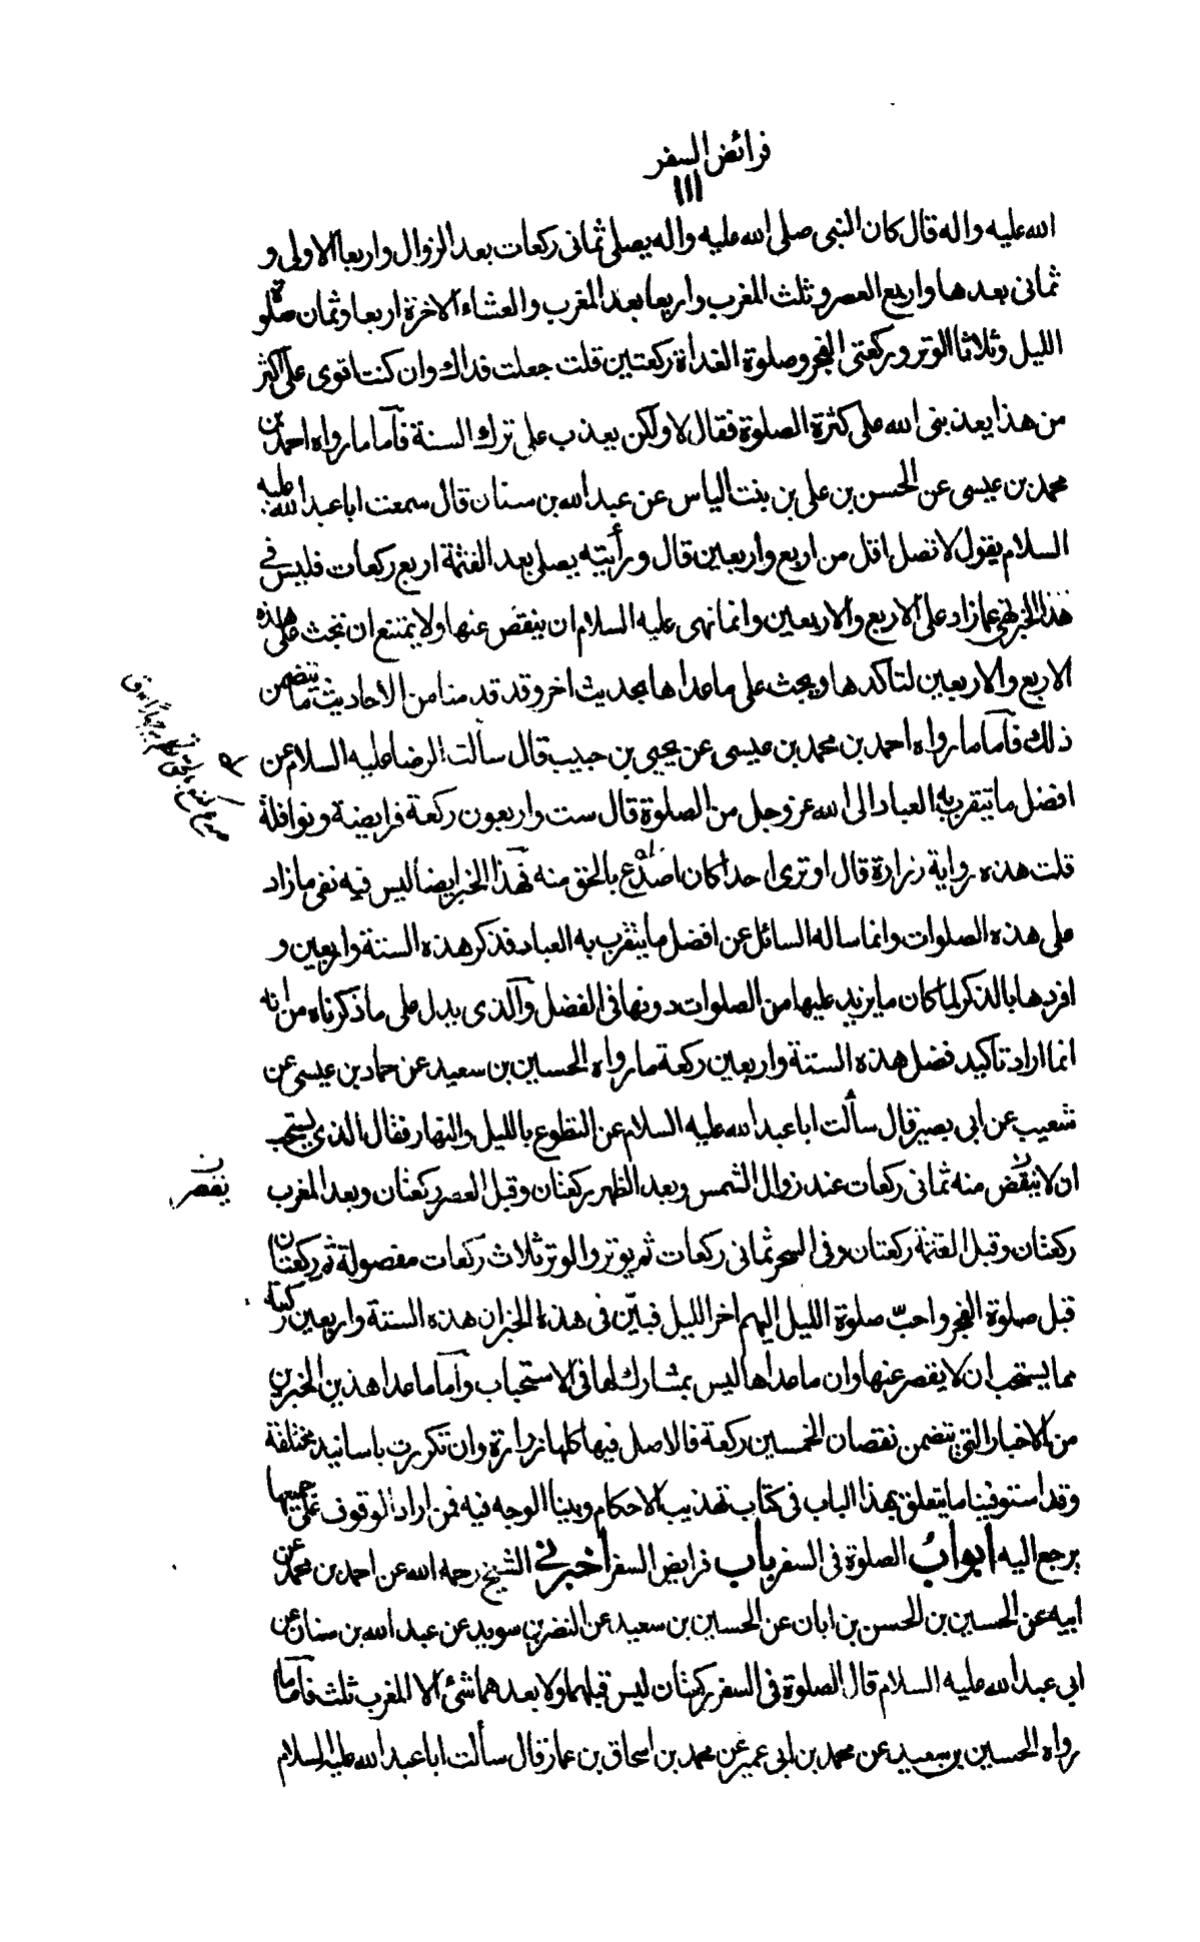 فرائض السفر
١١١
الله عليه واله قال كان النبى صلى الله عليه واله يصلى ثمانى ركعات بعد الزوال واربعا الاولى و
ثمانى بعدها واربع العصر وثلث المغرب واربعا بعد المغرب والعشاء الاخرة اربعا وثمان صلوة
الليل وثلاثا الوتر وركعتى الفجر وصلوة الغداة ركعتين قلت جعلت فداك وان كنت اقوى على اكثر
من هذا يعذبنى الله على كثرة الصلوة فقال لا ولكن يعذب على ترك السنة فاما ما رواه احمد بن
محمد بن عيسى عن الحسن بن على بن بنت الياس عن عبد الله بن سنان قال سمعت ابا عبد الله عليه
السلام يقول لا تصل اقل من اربع واربعين قال ورأيته يصلى بعد العتمة اربع ركعات فليس فى
هذا الخبر نهى عما زاد على الاربع والاربعين وانما نهى عليه السلام ان ينقص عنها ولا يمتنع ان يحث على هذه
الاربع والاربعين لتاكدها ويحث على ما عداها بحديث اخر وقد قدمنا من الاحاديث ما يتضمن
ذلك فاما ما رواه احمد بن محمد بن عيسى عن يحيى بن حبيب قال سألت الرضا عليه السلام عن
افضل ما يتقرب به العباد الى الله عز وجل من الصلوة قال ست واربعون ركعة فرايضه ونوافله
قلت هذه رواية زرارة قال اوترى احدا كان اصدع بالحق منه فهذا الخبر ايضا ليس فيه نفى ما زاد
على هذه الصلوات وانما ساله السائل عن افضل ما يتقرب به العباد فذكر هذه الستة واربعين و
افردها بالذكر لما كان ما يزيد عليها من الصلوات دونها فى الفضل والذى يدل على ما ذكرناه من انه
انما اراد تاكيد فضل هذه الستة واربعين ركعة ما رواه الحسين بن سعيد عن حماد بن عيسى عن
شعيب عن ابى بصير قال سألت ابا عبد الله عليه السلام عن التطوع بالليل والنهار فقال الذى يستحب
ان لا ينقص منه ثمانى ركعات عند زوال الشمس وبعد الظهر ركعتان وقبل العصر ركعتان وبعد المغرب
يقصر ن
ركعتان وقبل العتمة ركعتان وفى السحر ثمانى ركعات ثم يوتر والوتر ثلاث ركعات مفصولة ثم ركعتان
قبل صلوة الفجر واحب صلوة الليل اليهم اخر الليل فبيّن فى هذا الخبر ان هذه الستة واربعين ركعة
مما يستحب ان لا يقصر عنها وان ما عداها ليس بمشارك لها فى الاستحباب واما ما عدا هذين الخبرين
من الاخبار التى يتضمن نقصان الخمسين ركعة فالاصل فيها كلها زرارة وان تكررت باسانيد مختلفة
وقد استوفينا ما يتعلق بهذا الباب فى كتاب تهذيب الاحكام وبينا الوجه فيه فمن اراد الوقوف على جميعها
يرجع اليه ابواب الصلوة فى السفر باب فرايض السفر اخبرنى الشيخ رحمه الله عن احمد بن محمد عن
ابيه عن الحسين بن الحسن بن ابان عن الحسين بن سعيد عن النضر بن سويد عن عبد الله بن سنان عن
ابى عبد الله عليه السلام قال الصلوة فى السفر ركعتان ليس قبلهما ولا بعدهما شئ الا المغرب ثلث فاما ما
رواه الحسين بن سعيد عن محمد بن ابى عمير عن محمد بن اسحاق بن عمار قال سألت ابا عبد الله عليه السلام